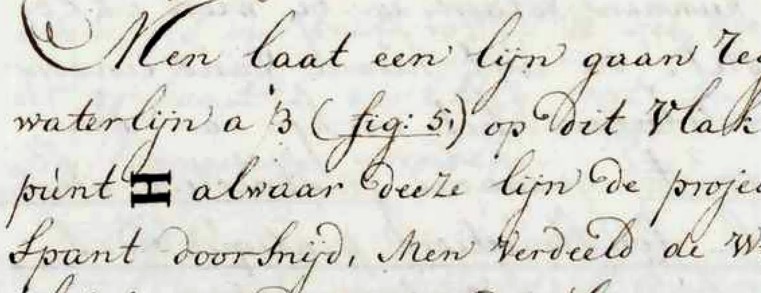 Men laat een lijn gaan
waterlijn a 3 (fig: 5.) op dit Vlak
púnt H alwaar deeze lijn de projec
Spant doorsnijd, Men verdeeld de W